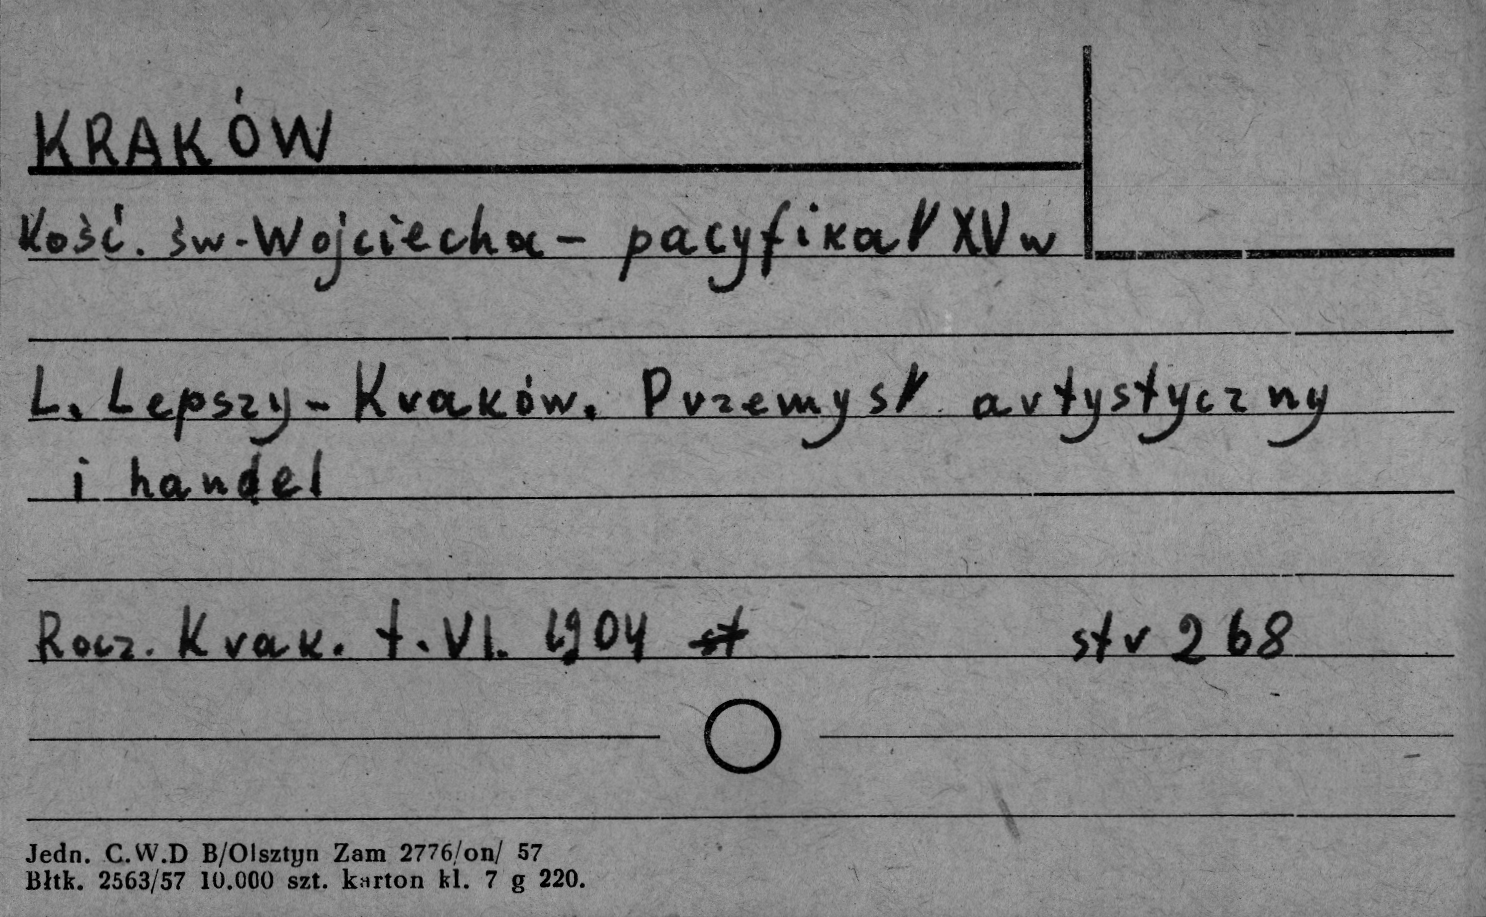 KRAKÓW
Kość. św. Wojciecha - pacyfikał XV w
L. Lepszy - Kraków. Przemysł artystyczny
i handel
Rocz. Krak. t. VI. 1904 st str 268
Jedn. C.W.D B/Olsztyn Zam 2776/on/ 57
Błtk. 2563/57 10.000 szt. karton kl. 7 g 220.